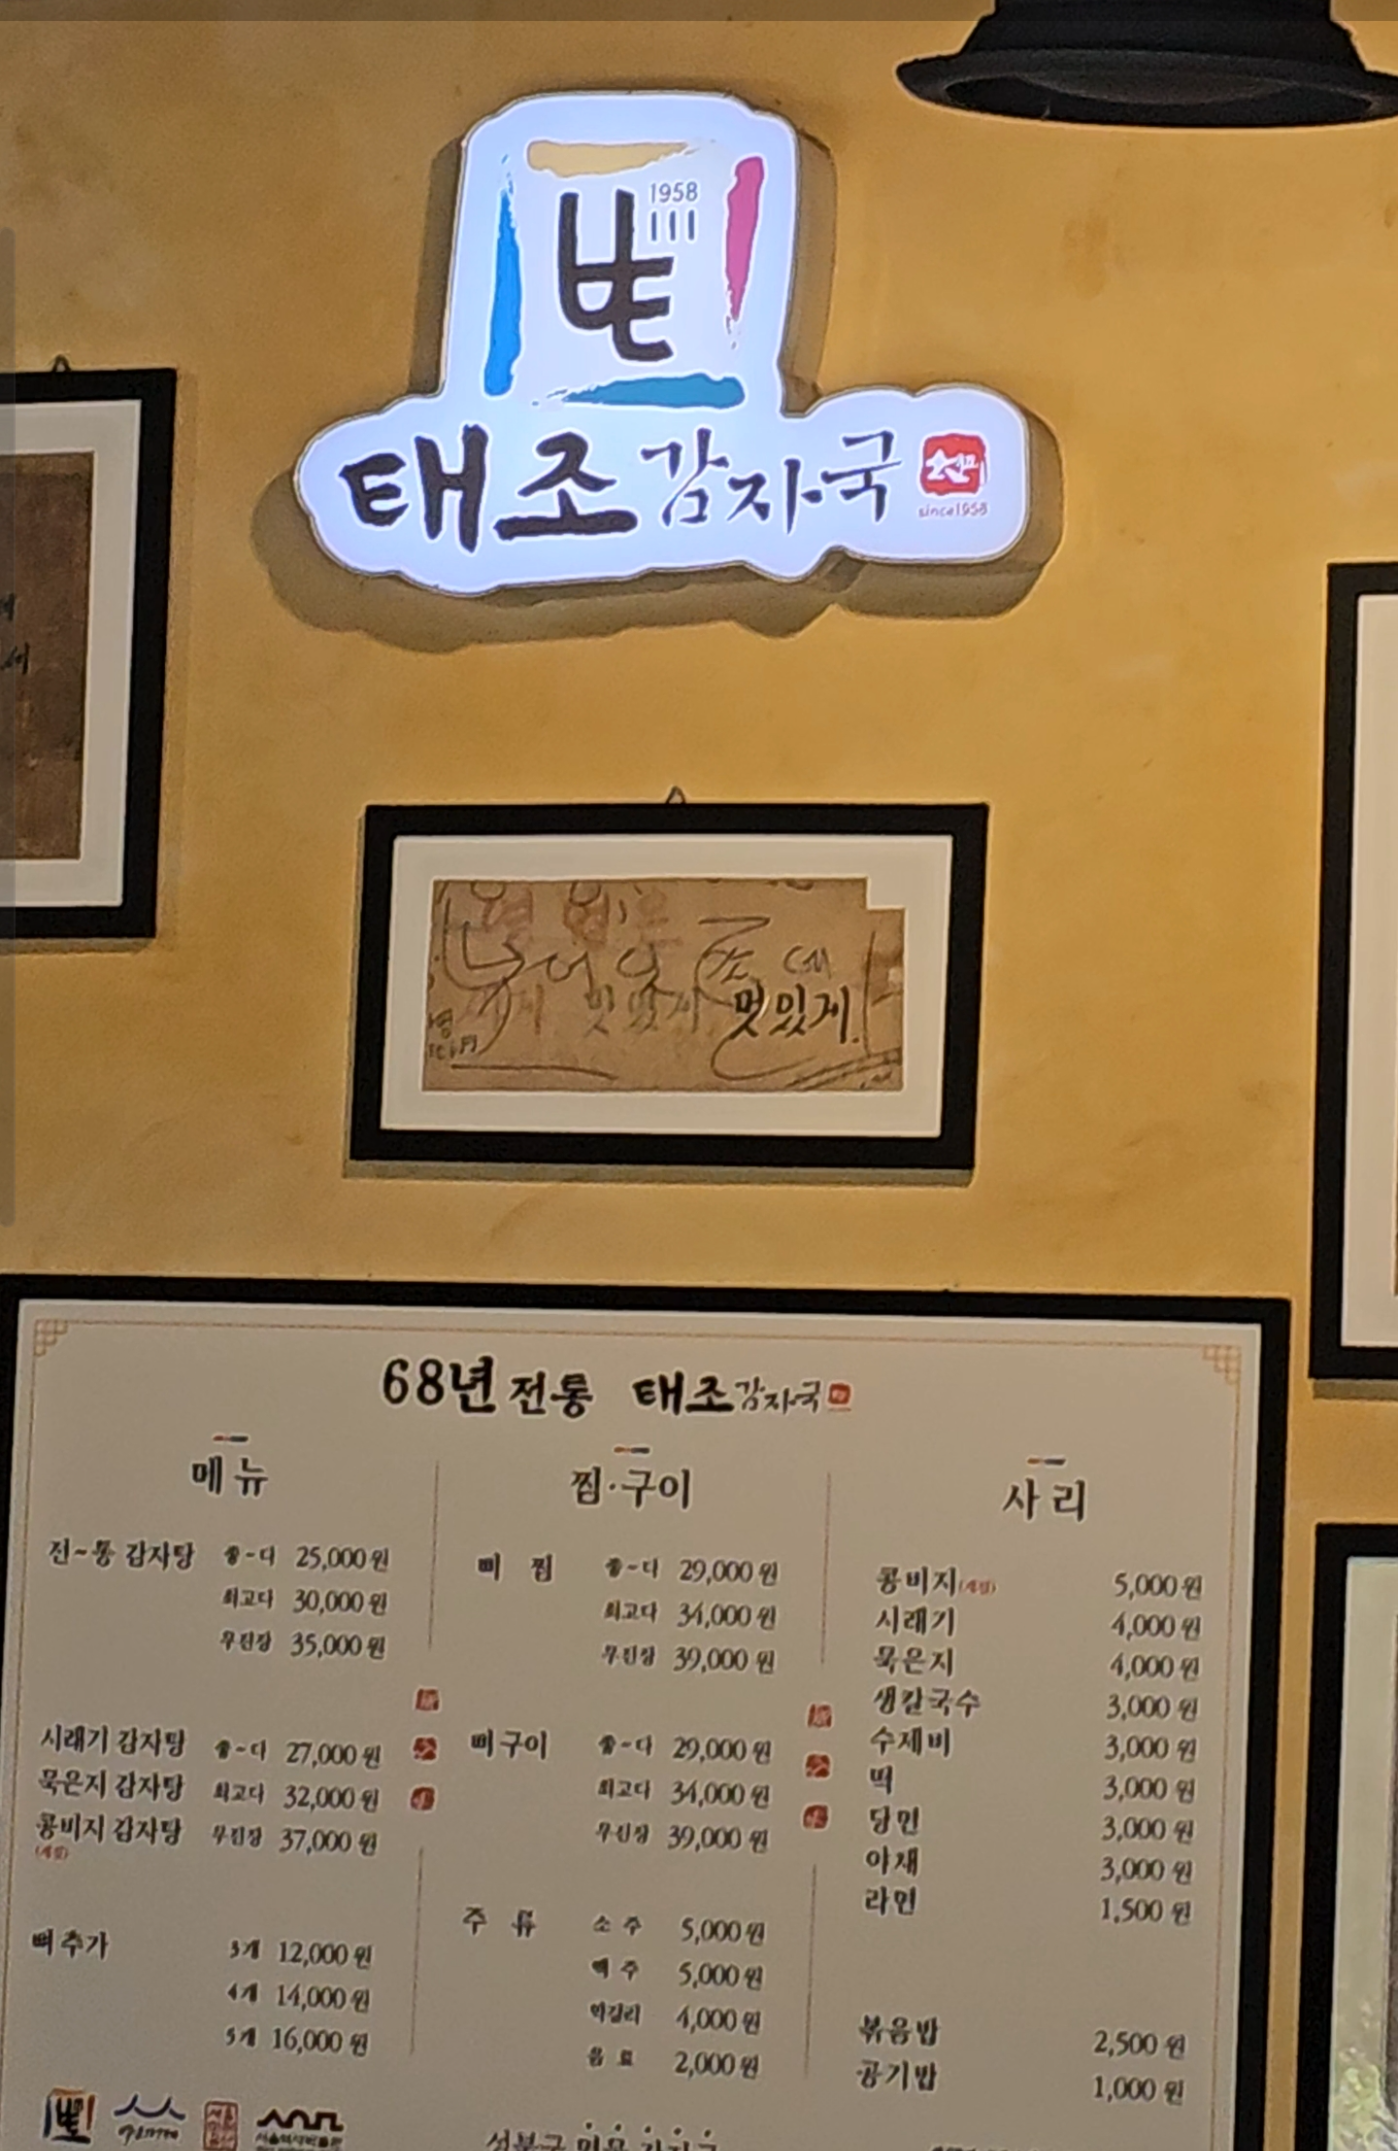 1958
뼈
태조감자국
since1958
멋있게.
68년 전통 태조감자국
메뉴
전~통 감자탕 좋~다 25,000원
최고다 30,000원
무진장 35,000원
시래기 감자탕 좋~다 27,000원
묵은지 감자탕 최고다 32,000원
콩비지 감자탕 무진장 37,000원
(계절)
뼈추가 3개 12,000원
4개 14,000원
5개 16,000원
찜·구이
뼈 찜 좋~다 29,000원
최고다 34,000원
무진장 39,000원
뼈구이 좋~다 29,000원
최고다 34,000원
무진장 39,000원
주 류 소 주 5,000원
맥 주 5,000원
막걸리 4,000원
음 료 2,000원
사리
콩비지(계절) 5,000원
시래기 4,000원
묵은지 4,000원
생칼국수 3,000원
수제비 3,000원
떡 3,000원
당면 3,000원
야채 3,000원
라면 1,500원
볶음밥 2,500원
공기밥 1,000원